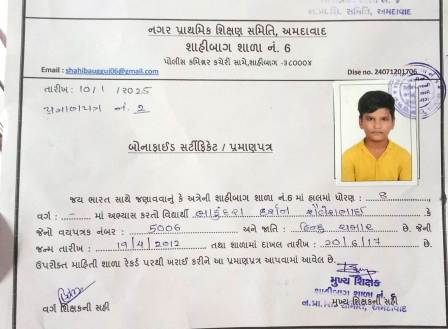 ન.પ્રા.શિ. સમિતિ, અમદાવાદ
નગર પ્રાથમિક શિક્ષણ સમિતિ, અમદાવાદ
શાહીબાગ શાળા નં. 6
પોલીસ કમિશ્નર કચેરી સામે,શાહીબાગ -૩૮૦૦૦૪
Email : shahibauggui06@gmail.com Dise no. 24071201706
તારીખ: 10/1 /2025
પ્રમાણપત્ર નં. 2
બોનાફાઈડ સર્ટીફિકેટ / પ્રમાણપત્ર
જય ભારત સાથે જણાવવાનું કે અત્રેની શાહીબાગ શાળા નં.6 માં હાલમાં ધોરણ : 8
વર્ગ : - માં અભ્યાસ કરતી વિદ્યાર્થી દર્શન શૈલેષભાઈ કે
જેનો વયપત્રક નંબર : 5006 અને જાતિ : હિન્દુ ચમાર છે. જેની
જન્મ તારીખ : 19/4/2012 તથા શાળામાં દાખલ તારીખ : 20/6/17 છે.
ઉપરોક્ત માહિતી શાળા રેકર્ડ પરથી ખરાઈ કરીને આ પ્રમાણપત્ર આપવામાં આવેલ છે.
મુખ્ય શિક્ષક
શાહીબાગ શાળા નં.
વર્ગ શિક્ષકની સહી મુખ્ય શિક્ષકની સહી